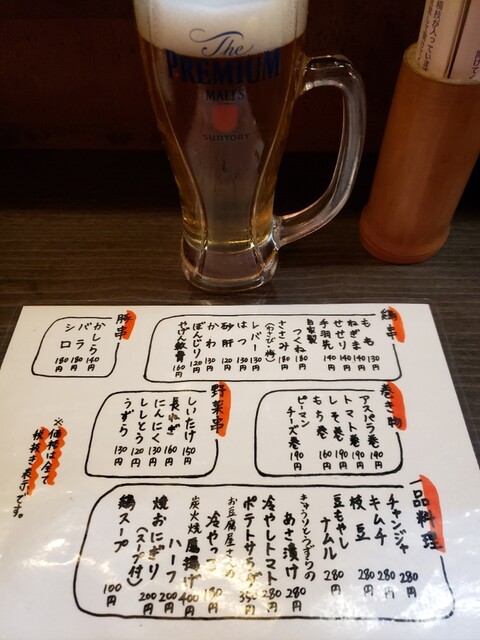 The
PREMIUM
MALT'S
SUNTORY
鶏串
もも 130円
ねぎま 140円
せせり 140円
手羽先 140円
自家製
つくね 180円
ささみ 180円
(わさび・梅)
レバー 130円
はつ 130円
砂肝 120円
かわ 120円
ぼんじり 120円
やげん軟骨 160円
豚串
かしら 140円
バラ 180円
シロ 180円
巻き物
アスパラ巻 190円
トマト巻 190円
しそ巻 190円
もち巻 160円
ピーマン
チーズ巻 190円
野菜串
しいたけ 150円
長ねぎ 160円
にんにく 130円
ししとう 120円
うずら 130円
※価格は全て
税抜き表示です。
一品料理
チャンジャ 280円
キムチ 280円
枝豆 280円
豆もやし
ナムル 280円
きゅうりとうずらの
あさ漬け 280円
冷やしトマト 280円
ポテトサラダ 350円
お豆腐屋さんの
冷やっこ 180円
炭火焼厚揚げ 400円
ハーフ 200円
焼おにぎり 200円
(スープ付)
鶏スープ 100円